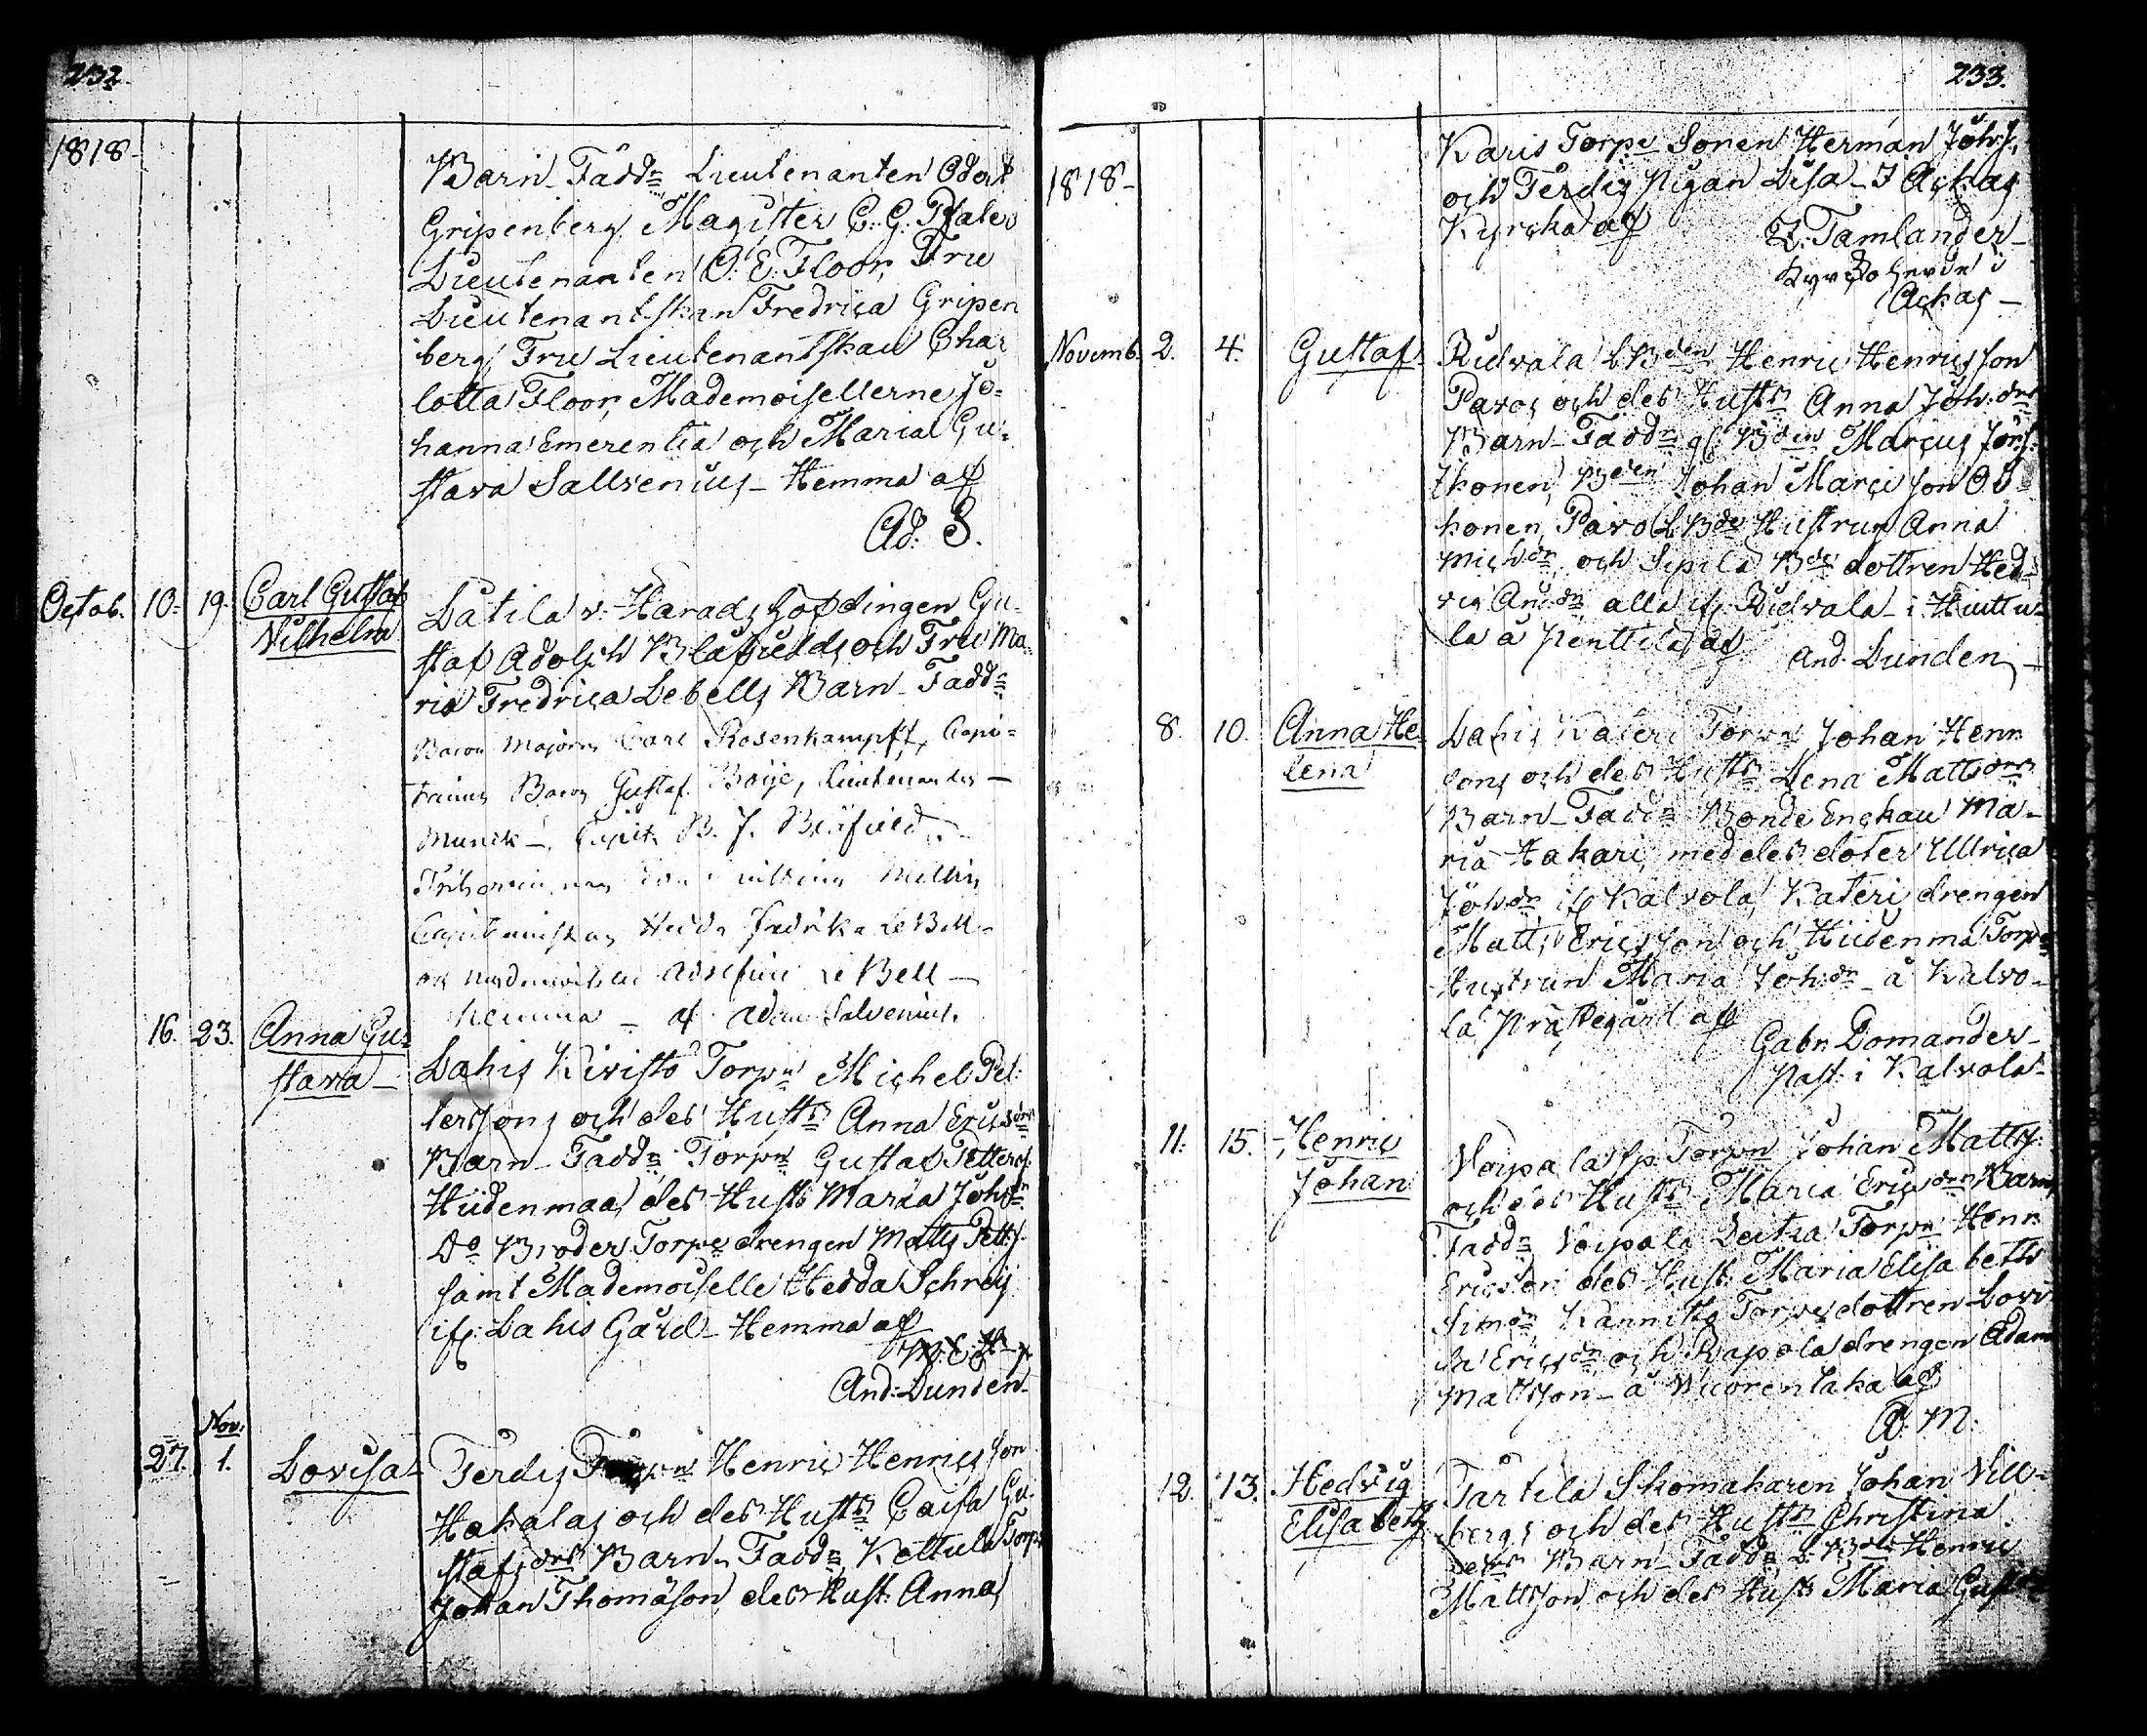 232
1818-
Barn- Fadd:r Lieutenanten Odert
Gripenberg, Magister C: G: Pfaler
Lieutenanten O: E: Floor, Fru
Lieutenantskan Fredrica Gripen
berg, Fru Lieutenantskan Char
lotta Floor, Mademoisellerne Jo=
hanna Emerentia och Maria Gu=
stava Sallvenius- Hemma af
Ad: S.
Octob. 10. 19. Carl Gustaf Vilhelm
Låtila v. Häradshöfdingen Gu-
staf Adolph Blåfields och Fru Ma-
ria Fredrica Lebells Barn- Fadd:r
Baron Majoren Carl Rosenkampff, Capi=
Baron Gustaf Boije, Lieutenanten -
Munck -, Capit. B. J. Blåfield,
Hedda Fredrika Le Bell-
Le Bell -
Hemma - af Adam Salvenius.
16. 23. Anna Gu= stava-
Lahis Kivistö Torp:n Michel Pet
terssons och des Hust:s Anna Ericsd:rs
Barn- Fadd:r Torp:n Gustaf Petters:
Hiidenmaa, des Hust: Maria Joh:dr
D:o Broder Torpedrengen Matts Pett:s
samt Mademoiselle Hedda Schreij
if: Lahis Gård- Hemma af
And: Lunden-
27. Nov: 1. Lovisa-
Terdis Torp:n Henric Henricsson
Hakalas och des Hust:s Caisa Gu-
stafsd:rs Barn- Fadd:r Kettula Torp:
Johan Thomasson, des Hust: Anna,
233.
1818-
Karis Torpe Sonen Herman Joh:s.
och Terdis Pigan Lisa- I Ackas
Kyrcka af
Z: Tamlander-
Kyrcko Herde i
Ackas-
Novemb. 2. 4. Gustaf-
Ridvala L.B:den Henric Henricsson
Pavos och des Hust:s Anna Joh:drs
Barn- Fadd:r B:den Marcus Jör:s:
Ikonen, B:den Johan Marcisson O
konen, Pavo L.B:de Hustrun Anna
Mich:dr och Sipilä B:de dottren Hed-
vig And:dr alla if: Ridvala- i Huttu=
la å Penttilä af
And. Lunden,-
8. 10. Anna He- lena
Lahis Kateri Torp:n Johan Henr:
sons och des Hust:s Lena Mattsd:rs
Barn- Fadd:r Bonde Enckan Ma-
ria Hakari, med des doter Ullrica
Joh:dr if: Kalvola, Kateri drengen
Matts Ericsson och Hiidenmaa Torp:
Hustrun Maria Joh:dr- å Kalvo-
la Prästegård af
Gabr: Domander-
Past: i Kalvola-
11. 15. Henric Johan
Voipala Torp:n Johan Matts:
och des Hust:s Maria Ericsd:rs Barn,
Fadd:r Voipala Torp:n Henr:
Ericsson des Hust: Maria Elisabeth
Sim:dr Kannisto Torpedottren Lovi
sa Ericsd:r och Rapola drengen Adam
Mattsson- å Vuorentaka af
A: M.
12. 13. Hedvig Elisabeth
Tartila Skomakaren Johan Vill-
bergs och des Hust:s Christina
Barn- Fadd:r L: B:de Henric
Mattsson och des Hust: Maria Gust